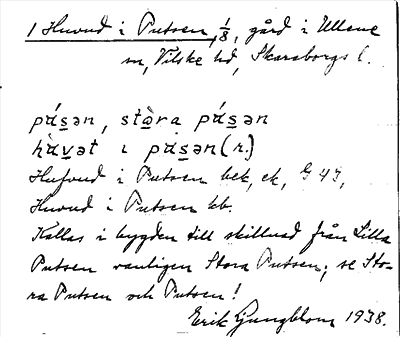 1 Huvud i Putsen, 1/8, gård i Ullene
sn, Vilske hd, Skaraborgs l.
pás̲ən, stò̲ra pás̲ən
hàv̲ət ı pás̲ən (n.)
Hufvud i Putsen bek, ek, G 43,
Huvud i Putsen kb.
Kallas i bygden till skillnad från Lilla
Putsen vanligen Stora Putsen; se Sto-
ra Putsen och Putsen!
Erik Ljungblom 1938.